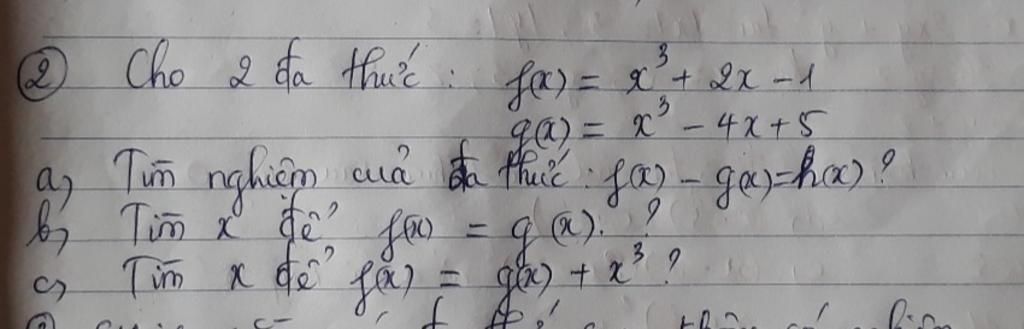 ② Cho 2 đa thức : f(x) = x³ + 2x - 1
g(x) = x³ - 4x + 5
a, Tìm nghiệm của đa thức : f(x) - g(x) = h(x) ?
b, Tìm x để f(x) = g(x). ?
c, Tìm x để f(x) = g(x) + x³ ?